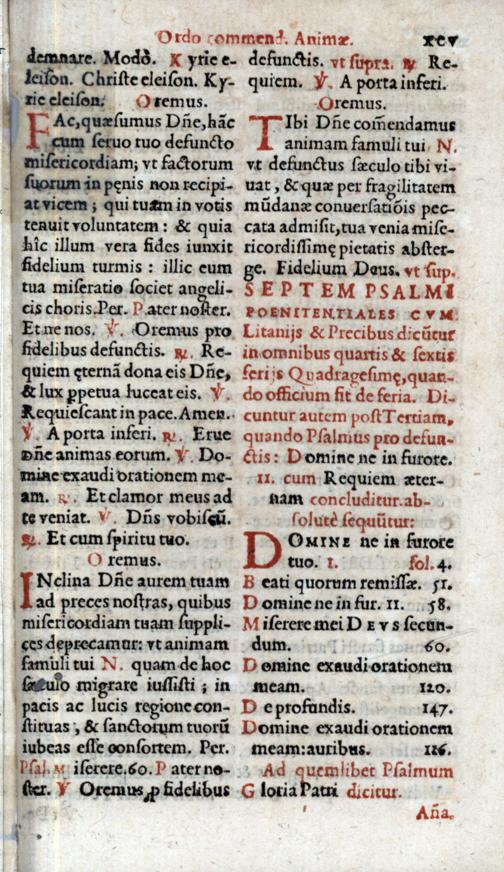 Ordo commend. Animæ. xcv
demnare. Modò. Kyrie e-
leison. Christe eleison. Ky-
rie eleison. Oremus.
FAc, quæsumus Dñe, hãc
cum seruo tuo defuncto
misericordiam; vt factorum
suorum in pęnis non recipi-
at vicem; qui tuam in votis
tenuit voluntatem: & quia
hîc illum vera fides iunxit
fidelium turmis: illic eum
tua miseratio societ angeli-
cis choris. Per. Pater noster.
Et ne nos. ℣. Oremus pro
fidelibus defunctis. ℟. Re-
quiem ęternã dona eis Dñe,
& lux ꝑpetua luceat eis. ℣.
Requiescant in pace. Amen.
℣. A porta inferi. ℟. Erue
Dñe animas eorum. ℣. Do-
mine exaudi orationem me-
am. ℟. Et clamor meus ad
te veniat. ℣. Dñs vobiscũ.
℟. Et cum spiritu tuo.
Oremus.
INclina Dñe aurem tuam
ad preces nostras, quibus
misericordiam tuam suppli-
ces deprecamur: vt animam
famuli tui N. quam de hoc
sæculo migrare iussisti; in
pacis ac lucis regione con-
stituas, & sanctorum tuorũ
iubeas esse consortem. Per.
Psal. Miserere. 60. Pater no-
ster. ℣ Oremus ꝓ fidelibus
defunctis. vt supra. ℟ Re-
quiem. ℣. A porta inferi.
Oremus.
TIbi Dñe com̃endamus
animam famuli tui N.
vt defunctus sæculo tibi vi-
uat, & quæ per fragilitatem
mũdanæ conuersatiõis pec-
cata admisit, tua venia mise-
ricordissimę pietatis abster-
ge. Fidelium Deus. vt sup.
SEPTEM PSALMI
POENITENTIALES CVM
Litanijs & Precibus dicũtur
in omnibus quartis & sextis
ferijs Quadragesimę, quan-
do officium fit de feria. Di-
cuntur autem post Tertiam,
quando Psalmus pro defun-
ctis: Domine ne in furore.
II. cum Requiem æter-
nam concluditur. ab-
solutè sequũtur:
DOMINE ne in furore
tuo. I. fol. 4.
Beati quorum remissæ. 51.
Domine ne in fur. II. 58.
Miserere mei DEVS secun-
dum. 60.
Domine exaudi orationem
meam. 120.
De profundis. 147.
Domine exaudi orationem
meam: auribus. 116.
Ad quemlibet Psalmum
Gloria Patri dicitur.
Aña.